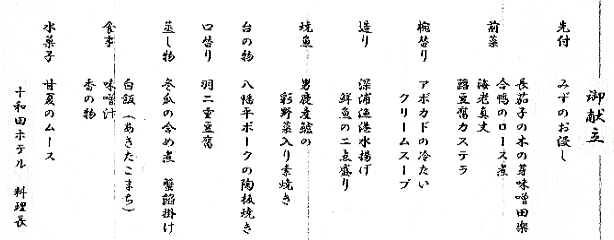 御献立
先付 みずのお浸し
前菜 長茄子の木の芽味噌田楽
合鴨のロース煮
海老真丈
諸豆腐カステラ
椀替り アボカドの冷たい
クリームスープ
造り 深浦漁港水揚げ
鮮魚の二点盛り
焼魚 男鹿産鱸の
彩野菜入り素焼き
台の物 八幡平ポークの陶板焼き
口替り 羽二重豆腐
蒸し物 冬瓜の含め煮 蟹餡掛け
食事 白飯(あきたこまち)
味噌汁
香の物
水菓子 甘夏のムース
十和田ホテル 料理長